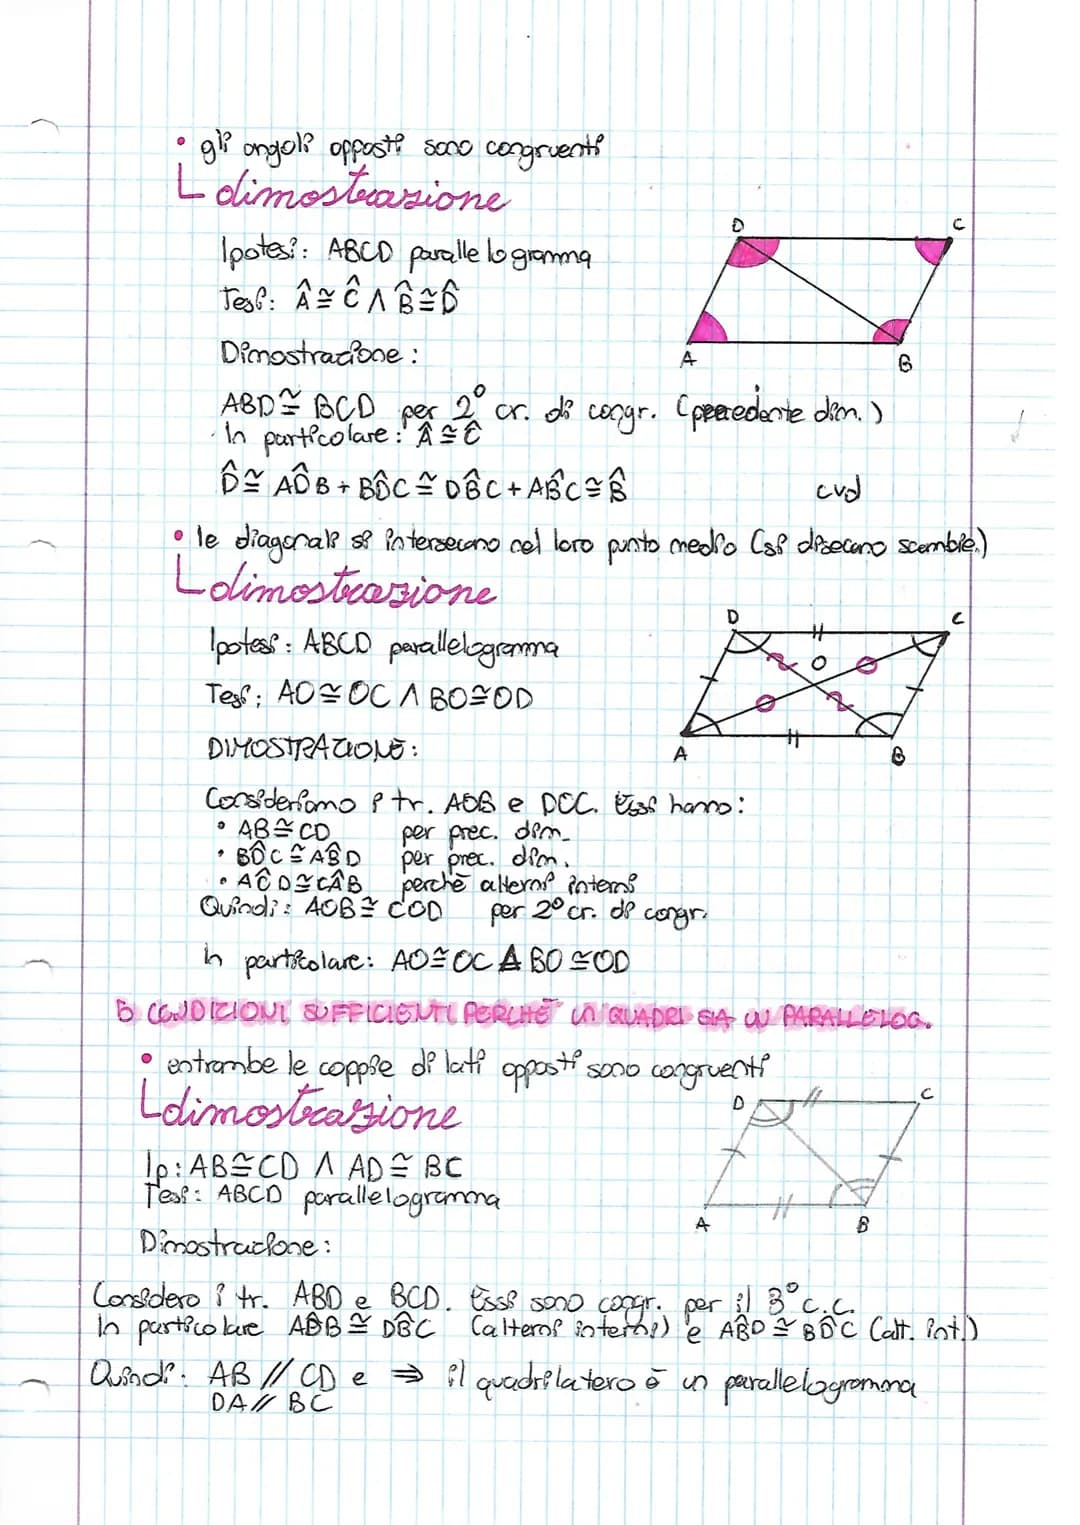 • gli angoli opposti sono congruenti
dimostrazione
D C
Ipotesi: ABCD parallelogramma
Tesi: Â ≅ Ĉ ∧ B̂ ≅ D̂
Dimostrazione:
A B
ABD ≅ BCD per 2° cr. di congr. (precedente dim.)
In particolare: Â ≅ Ĉ
D̂ ≅ AD̂B + BD̂C ≅ DB̂C + AB̂C ≅ B̂ cvd
• le diagonali si intersecano nel loro punto medio (si disecano scambie.)
dimostrazione
D C
Ipotesi: ABCD parallelogramma
O
Tesi: AO ≅ OC ∧ BO ≅ OD
DIMOSTRAZIONE:
A B
Consideriamo i tr. AOB e DCC. Essi hanno:
• AB ≅ CD per prec. dim.
• BD̂C ≅ AB̂D per prec. dim.
• AĈD ≅ CÂB perchè alterni interni
Quindi: AOB ≅ COD per 2° cr. di congr.
In particolare: AO ≅ OC ∧ BO ≅ OD
5 CONDIZIONI SUFFICIENTI PERCHÈ UN QUADRI SIA UN PARALLELOG.
• entrambe le coppie di lati opposti sono congruenti
dimostrazione
D C
Ip: AB ≅ CD ∧ AD ≅ BC
Tesi: ABCD parallelogramma
A B
Dimostrazione:
Considero i tr. ABD e BCD. Essi sono congr. per il 3° c.c.
In particolare AD̂B ≅ DB̂C (alterni interni) e AB̂D ≅ BD̂C (alt. int.)
Quindi: AB // CD e ⇒ il quadrilatero è un parallelogramma
DA // BC